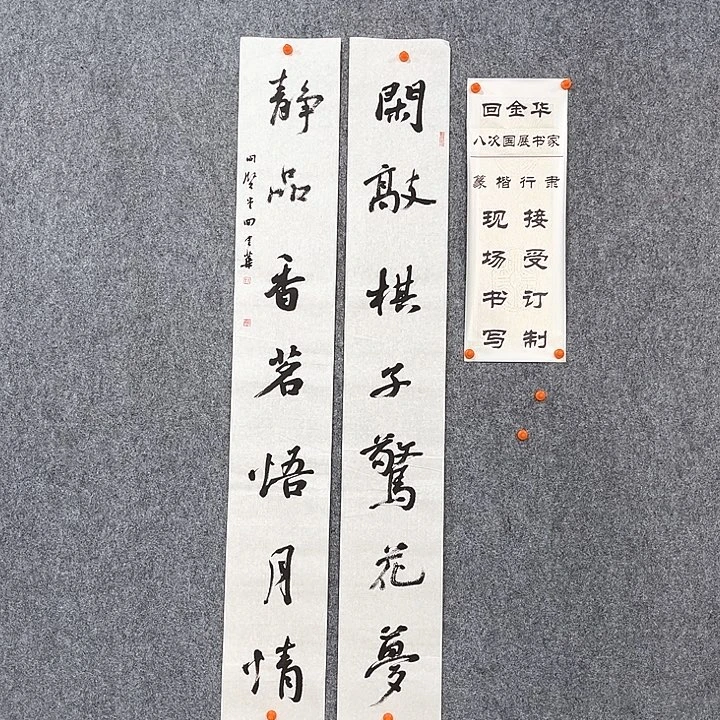 回金华
八次国展书家
篆楷行隶
接受订制
现场书写
閑敲棋子驚花夢
静品香茗悟月情
回金華